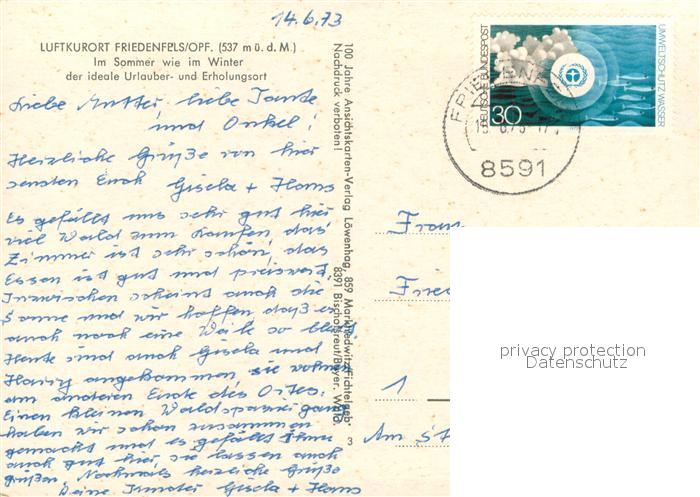 14.6.73
LUFTKURORT FRIEDENFELS/OPF. (537 m ü. d. M.)
Im Sommer wie im Winter
der ideale Urlauber- und Erholungsort
Liebe Mutter, liebe Tante
und Onkel!
Herzliche Grüße von hier
senden Euch Gisela + Hans
Es gefällt uns sehr gut hier
viel Wald zum Laufen, das
Zimmer ist sehr schön, das
Essen ist gut und preiswert.
Inzwischen scheint auch die
Sonne und wir hoffen daß es
auch noch eine Weile so bleibt.
Heute sind auch Gisela und
Harry angekommen, sie wohnen
am anderen Ende des Ortes.
Einen kleinen Waldspaziergang
haben wir schon zusammen
gemacht und es gefällt Ihnen
auch gut hier, sie lassen auch
grüßen. Nochmals herzliche Grüße
Deine Gisela + Hans
100 Jahre Ansichtskarten-Verlag Löwenhag 859 Marktredwitz/Fichtelgeb.
Nachdruck verboten! 8391 Bischofsreut/Bayer. Wald
3
DEUTSCHE BUNDESPOST
30
UMWELTSCHUTZ WASSER
8591
Frau
Fried
1
Am St
privacy protection
Datenschutz